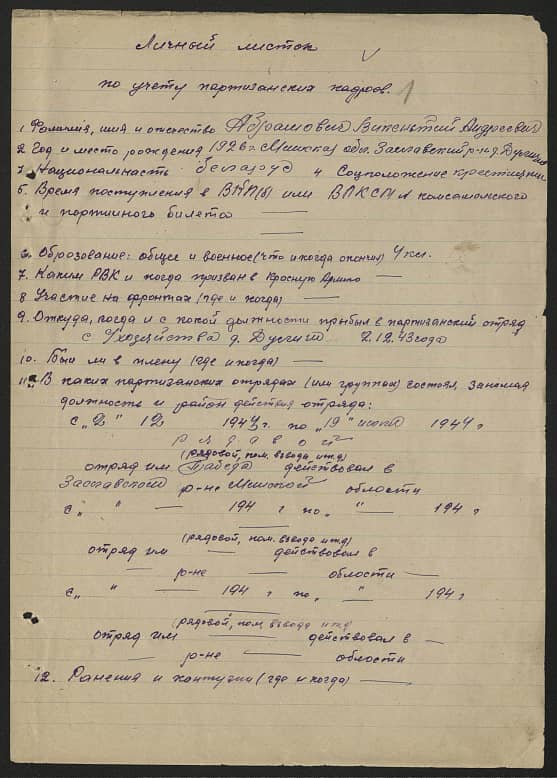 Личный листок
по учету партизанских кадров. 1
1. Фамилия, имя и отчество Абрамович Викентий Андреевич
2. Год и место рождения 1926 г. Минская обл. Заславский р-н д.
7. Национальность белорус 4 Соцположение крестьянин
5. Время поступления в ВКП(б) или ВЛКСМ № комсомольского
и партийного билета —
—
6. Образование: общее и военное (что и когда окончил) 4 кл.
7. Каким РВК и когда призван в Красную Армию —
8. Участие на фронтах (где и когда) —
9. Откуда, когда и с какой должности прибыл в партизанский отряд
с Ухозяйства д. 2.12.43 года
10. Был ли в плену (где и когда) —
11. В каких партизанских отрядах (или группах) состоял, занимал
должность и район действия отряда:
с „2" 12 1943 г. по „19" июня 1944 г
рядовой
(рядовой, пом. взвода и т.д)
отряд им Победа действовал в
Заславском р-не Минской области
с „ " — 194 г по „ " — 194 г
—
(рядовой, пом. взвода и т.д)
отряд им — действовал в
— р-не — области —
с „ " — 194 г по „ " — 194 г
—
(рядовой, пом. взвода и т.д
отряд им — действовал в —
— р-не — области
12. Ранения и контузии (где и когда) —